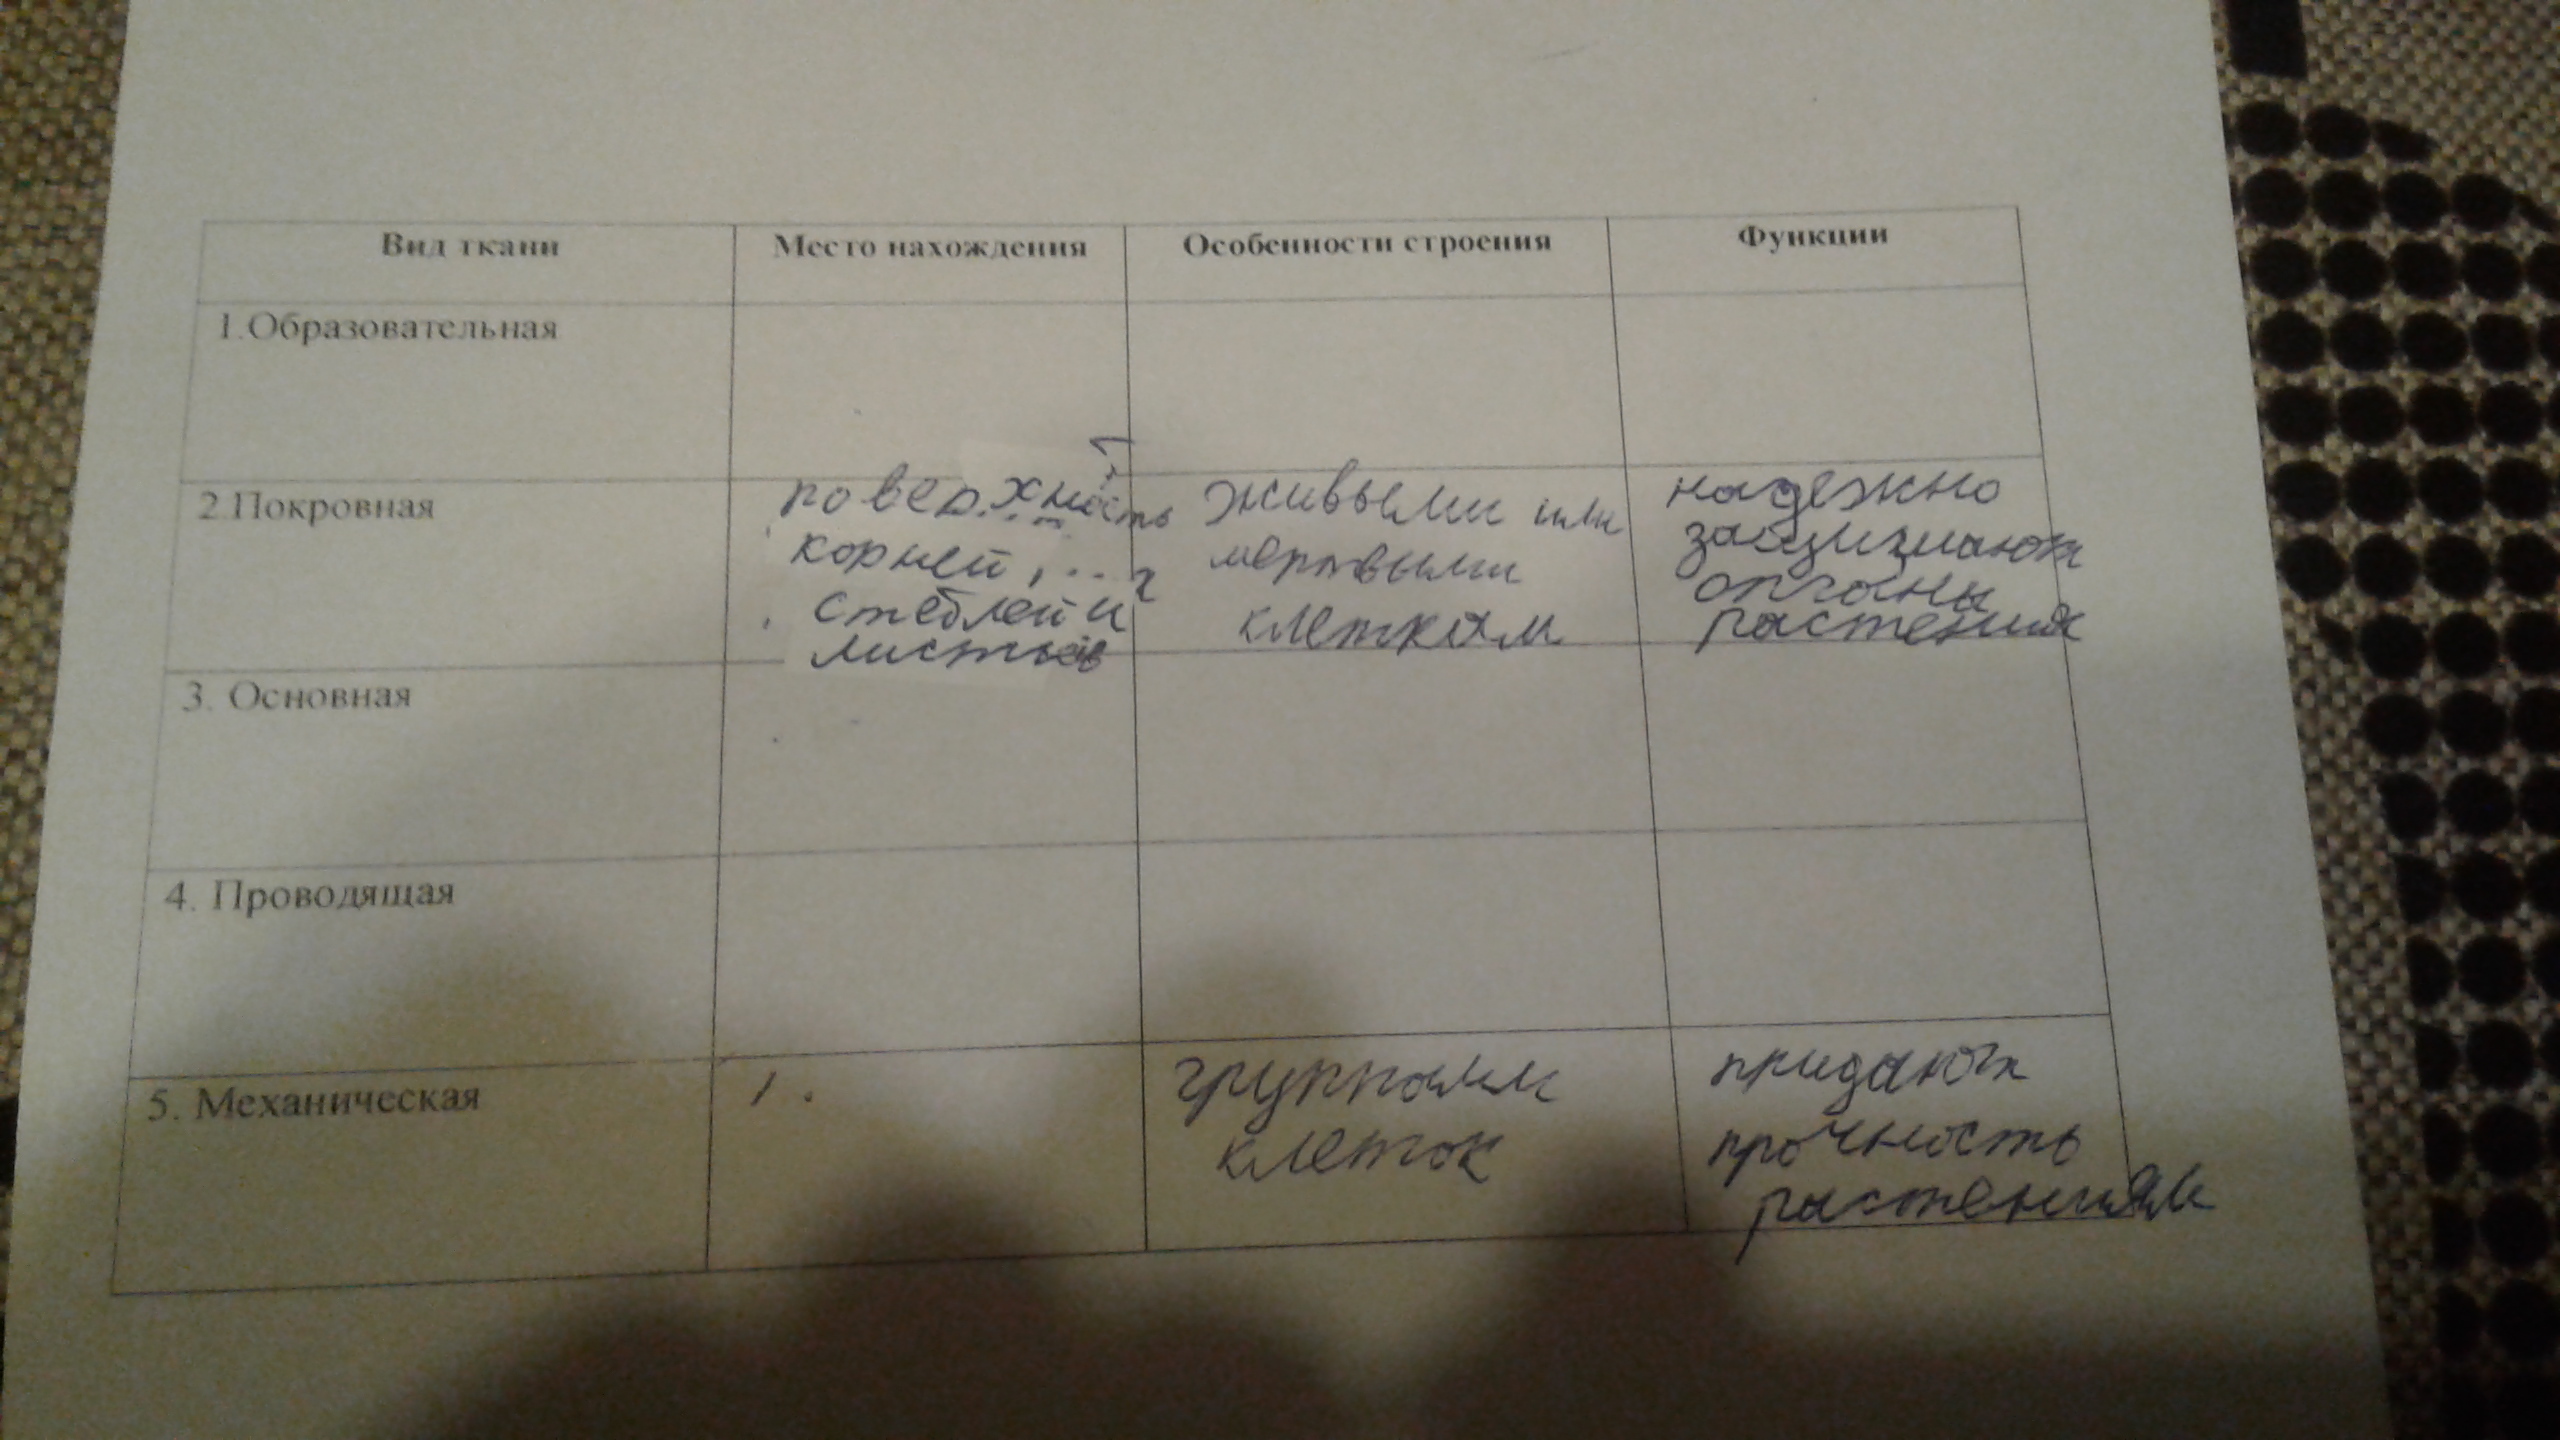 Вид ткани
Место нахождения
Особенности строения
Функции
1.Образовательная
2.Покровная
поверхность
корней,
стеблей и
листьев
живыми или
мертвыми
клеткам
надежно
защищают
органы
растения
3. Основная
4. Проводящая
5. Механическая
группами
клеток
придают
прочность
растениям